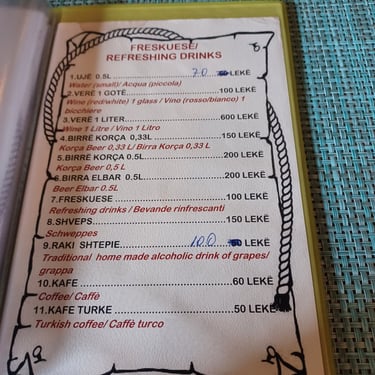 FRESKUESE/
REFRESHING DRINKS
1.UJË 0.5L 70 LEKË
Water (small)/ Acqua (piccola)
2.VERË 1 GOTË 100 LEKË
Wine (red/white) 1 glass / Vino (rosso/bianco) 1
bicchiere
3.VERË 1 LITER 600 LEKË
Wine 1 Litre / Vino 1 Litro
4.BIRRË KORÇA 0,33L 150 LEKË
Korça Beer 0,33 L/ Birra Korça 0,33 L
5.BIRRË KORÇA 0.5L 200 LEKË
Korça Beer 0,5 L
6.BIRRA ELBAR 0.5L 200 LEKË
Beer Elbar 0.5L
7.FRESKUESE 100 LEKË
Refreshing drinks / Bevande rinfrescanti
8.SHVEPS 150 LEKË
Schweppes
9.RAKI SHTEPIE 100 LEKË
Traditional home made alcoholic drink of grapes/
grappa
10.KAFE 60 LEKË
Coffee/ Caffè
11.KAFE TURKE 50 LEKË
Turkish coffee/ Caffè turco